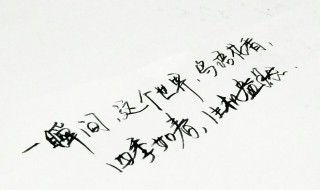 一瞬间,这个世界,鸟语花香,
四季如春,生机盎然.